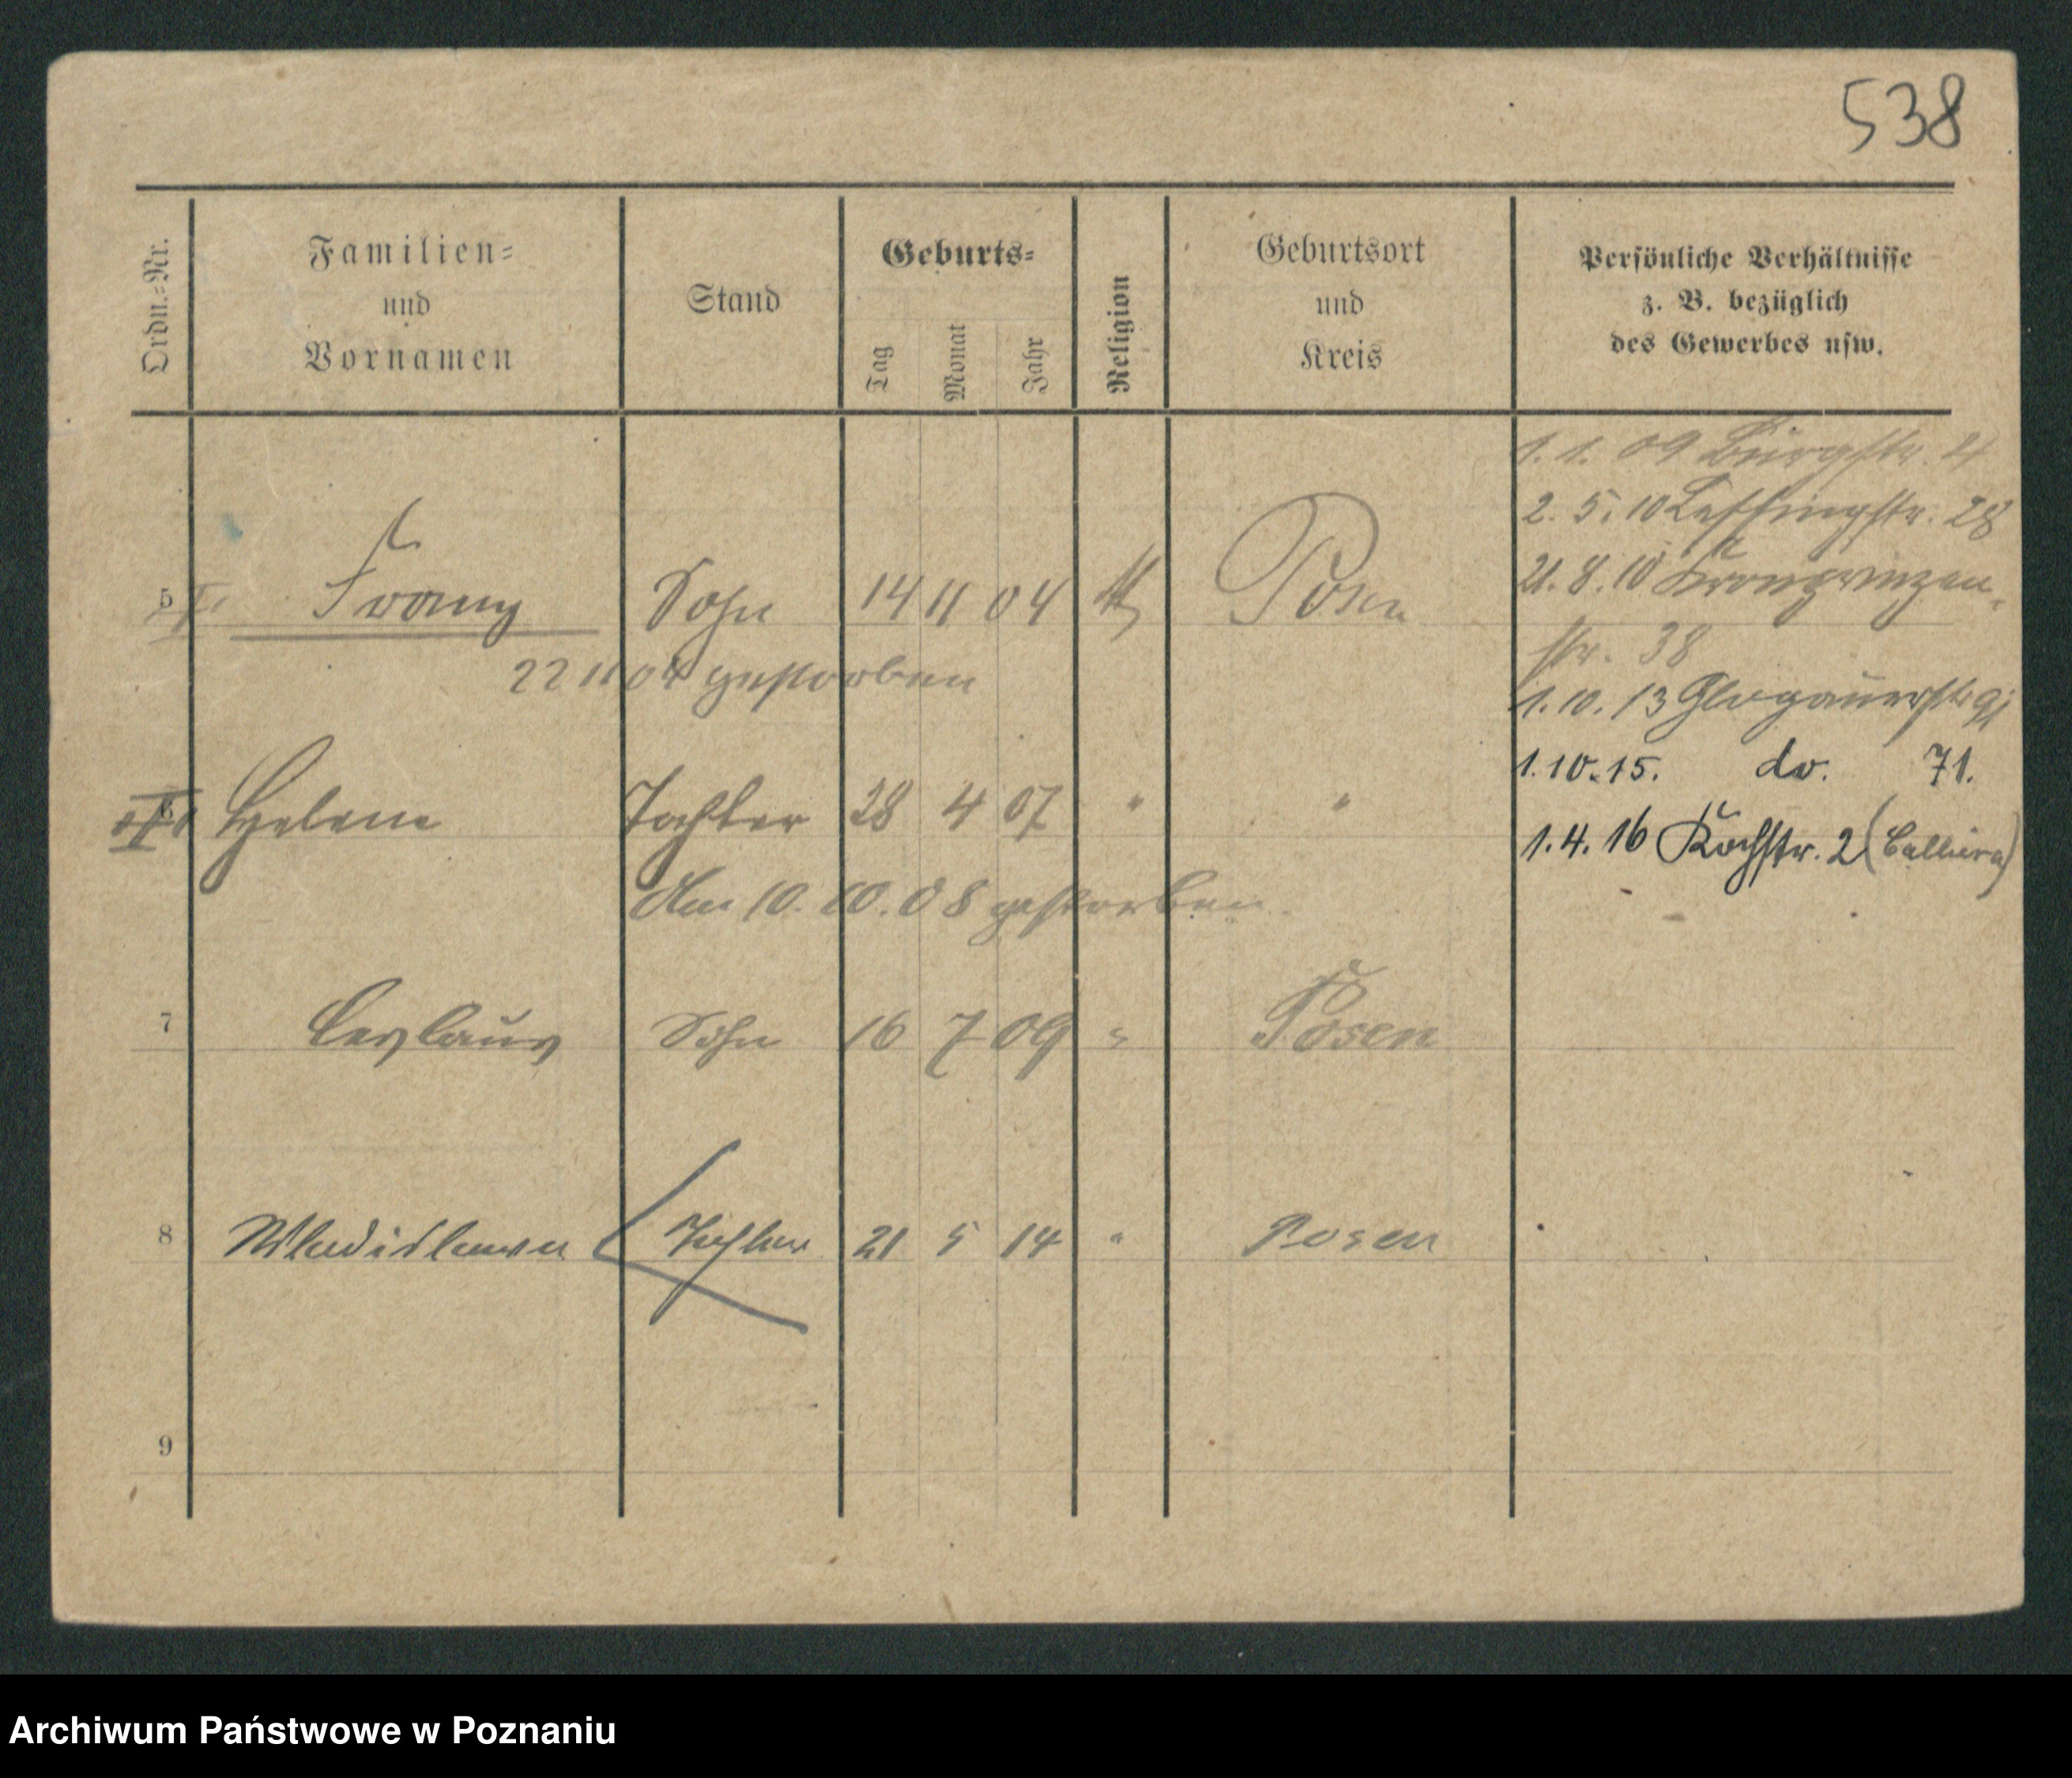 538
Ordn.=Nr.
Familien=
und
Vornamen
Stand
Geburts=
Tag
Monat
Jahr
Religion
Geburtsort
und
Kreis
Persönliche Verhältnisse
z. B. bezüglich
des Gewerbes usw.
1. 1. 09 Burgstr. 4
2. 5. 10 Lessingstr. 28
21. 8. 10 Kronprinzen
str. 38
1. 10. 13 Glogauerstr.
1. 10. 15. do. 71.
1. 4. 16 Kochstr. 2
5 Franz Sohn 14 11 04 Posen
22 11 04 gestorben
6 Helene Tochter 28 4 07 " "
Am 10. 10. 08 gestorben
7 Ceslaus Sohn 16 7 09 " Posen
8 Wladislawa Tochter 21 5 14 " Posen
9
Archiwum Państwowe w Poznaniu